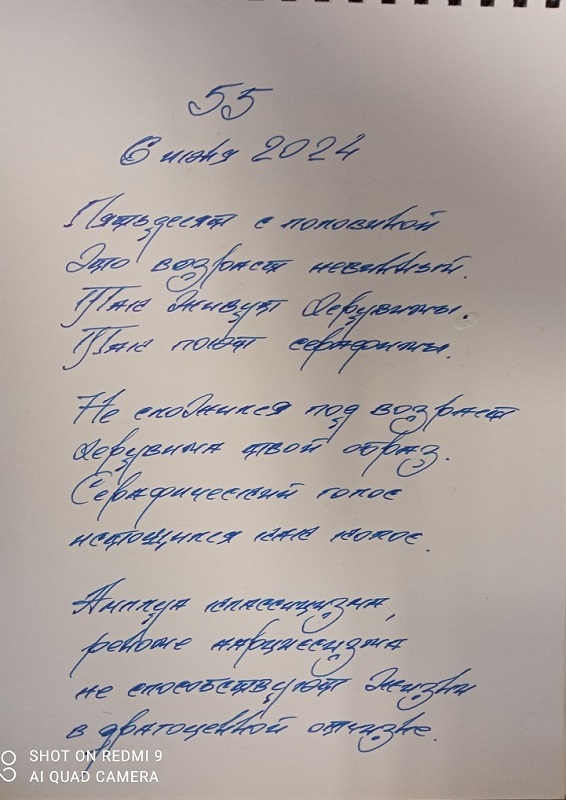 55
6 июня 2024
Пятьдесят с половиной
Это возраст невинный.
Так живут Херувимы.
Так поют серафимы.
Не сложился под возраст
Херувима твой образ.
Серафический голос
истощился как колос.
Амплуа классицизма,
реноме нарциссизма
не способствуют жизни
в драгоценной отчизне.
SHOT ON REDMI 9
AI QUAD CAMERA